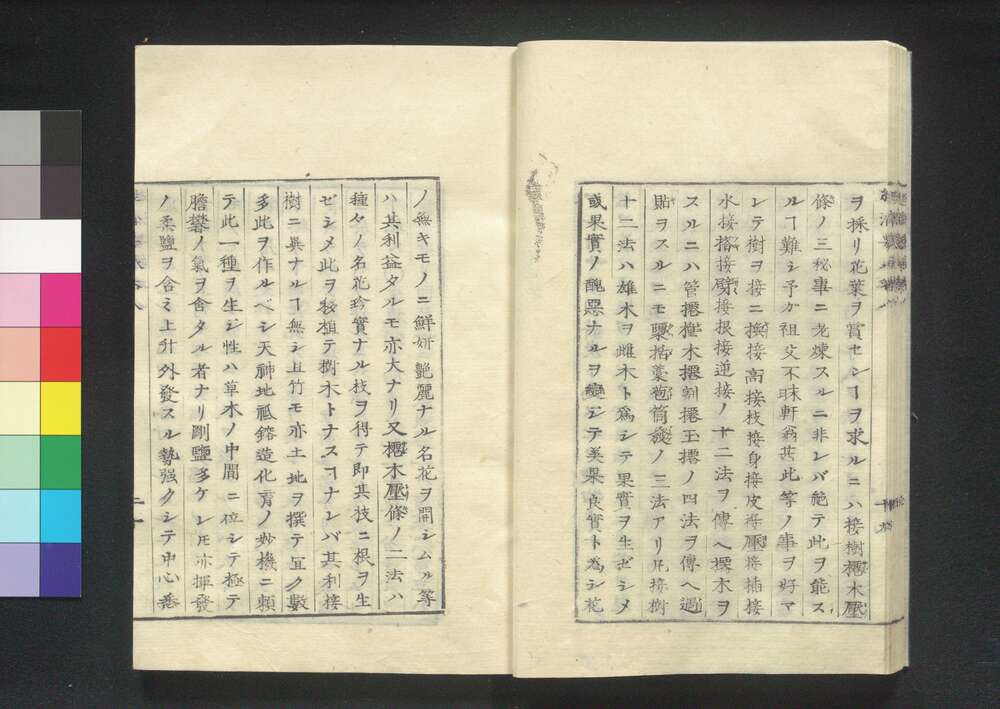 ヲ採リ花葉ヲ賞センヿヲ求ルニハ接樹摎木壓
條ノ三秘事ニ老煉スルニ非レバ絶テ此ヲ能ス
ルヿ難シ予ガ祖父不昧軒翁甚此等ノ事ヲ好マ
レテ樹ヲ接ニ換接高接枝接身接皮接壓接插接
水接搭接接根接逆接ノ十二法ヲ傳ヘ摎木ヲ
スルニハ管摎掩木摎割摎玉摎ノ四法ヲ傳ヘ過
貼ヲスルニモ筒ノ三法アリ凡接樹
十二法ハ雄木ヲ雌木ト爲シテ果實ヲ生ゼシメ
或果實ノ醜惡ナルヲ變ジテ美果良實ト爲シ花
ノ無キモノニ鮮妍艶麗ナル名花ヲ開シムル等
ハ其利益タルモ亦大ナリ又摎木壓條ノ二法ハ
種々ノ名花珍實ナル枝ヲ得テ即其枝ニ根ヲ生
ゼシメ此ヲ移植テ樹木トナスヿナレバ其利接
樹ニ異ナルヿ無シ且竹モ亦土地ヲ撰テ宜ク數
多此ヲ作ルベシ天神地祗鎔造化育ノ妙機ニ頼
テ此一種ヲ生ジ性ハ草木ノ中間ニ位シテ極テ
膽礬ノ氣ヲ含タル者ナリ剛鹽多ケレ𪜈亦揮發
ノ柔鹽ヲ含ミ上升外發スル勢强クシテ中心悉